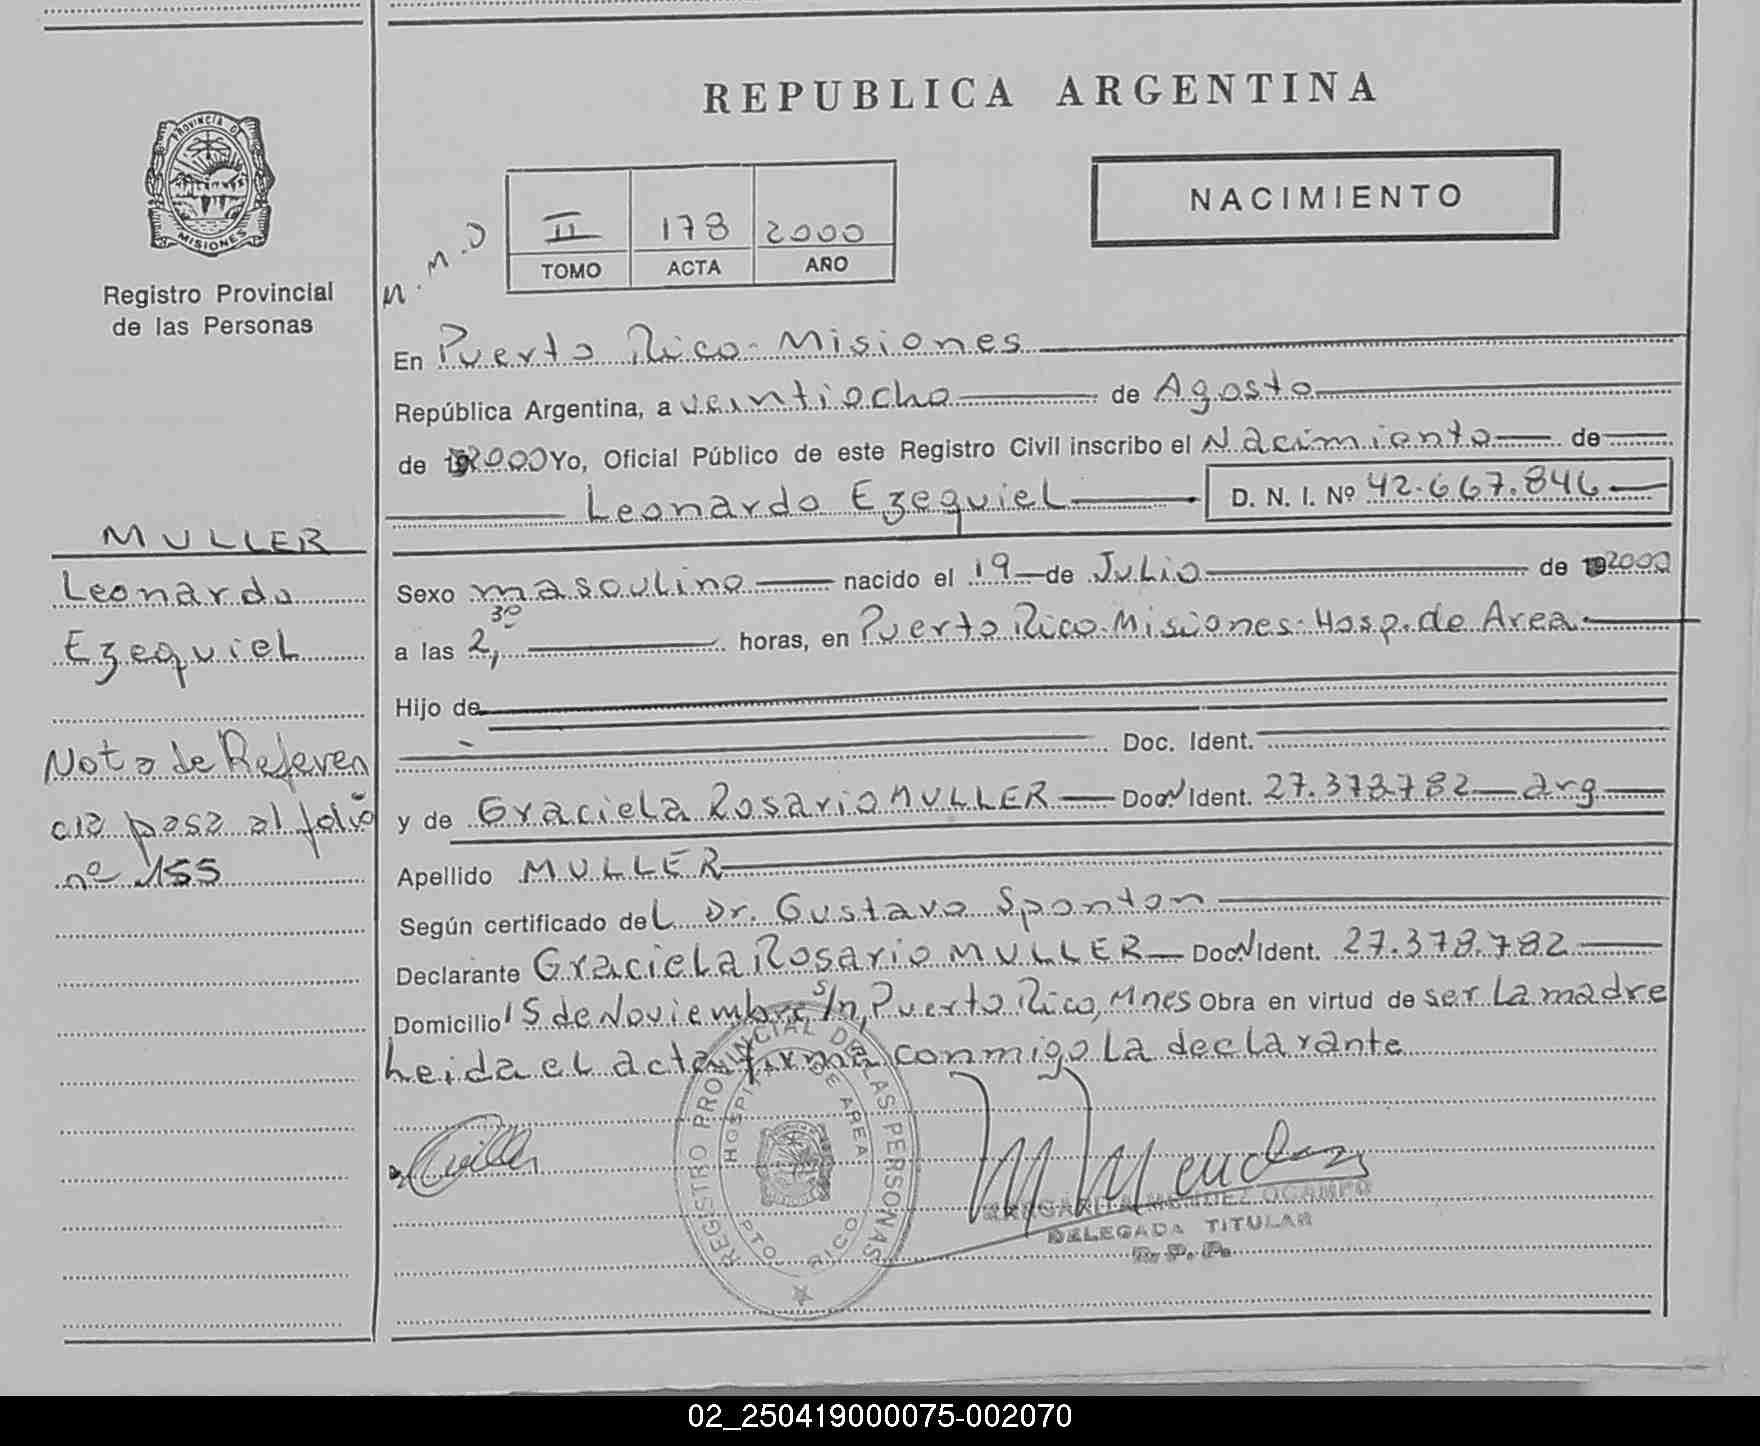 REPUBLICA ARGENTINA
PROVINCIA DE
MISIONES
Registro Provincial
de las Personas
NACIMIENTO
II 178 2000
TOMO ACTA AÑO
M.M.O
En Puerto Rico - Misiones
República Argentina, a veintiocho de Agosto
de 2000 Yo, Oficial Público de este Registro Civil inscribo el Nacimiento de
Leonardo Ezequiel D. N. I. Nº 42.667.846
MULLER
Leonardo
Ezequiel
Nota de Referen
cia pasa al folio
nº 155
Sexo masculino nacido el 19 de Julio de 2000
a las 2,30 horas, en Puerto Rico - Misiones - Hosp. de Area
Hijo de
Doc. Ident.
y de Graciela Rosario MULLER Doc. Ident. 27.378.782 arg
Apellido MULLER
Según certificado del Dr. Gustavo Sponton
Declarante Graciela Rosario MULLER Doc. Ident. 27.378.782
Domicilio 15 de Noviembre s/n, Puerto Rico, Mnes Obra en virtud de ser la madre
Leida el acta firma conmigo la declarante
REGISTRO PROVINCIAL DE LAS PERSONAS
HOSPITAL DE AREA
PTO. RICO
MARGARITA MENDEZ OCAMPO
DELEGADA TITULAR
R. P. P.
02_250419000075-002070